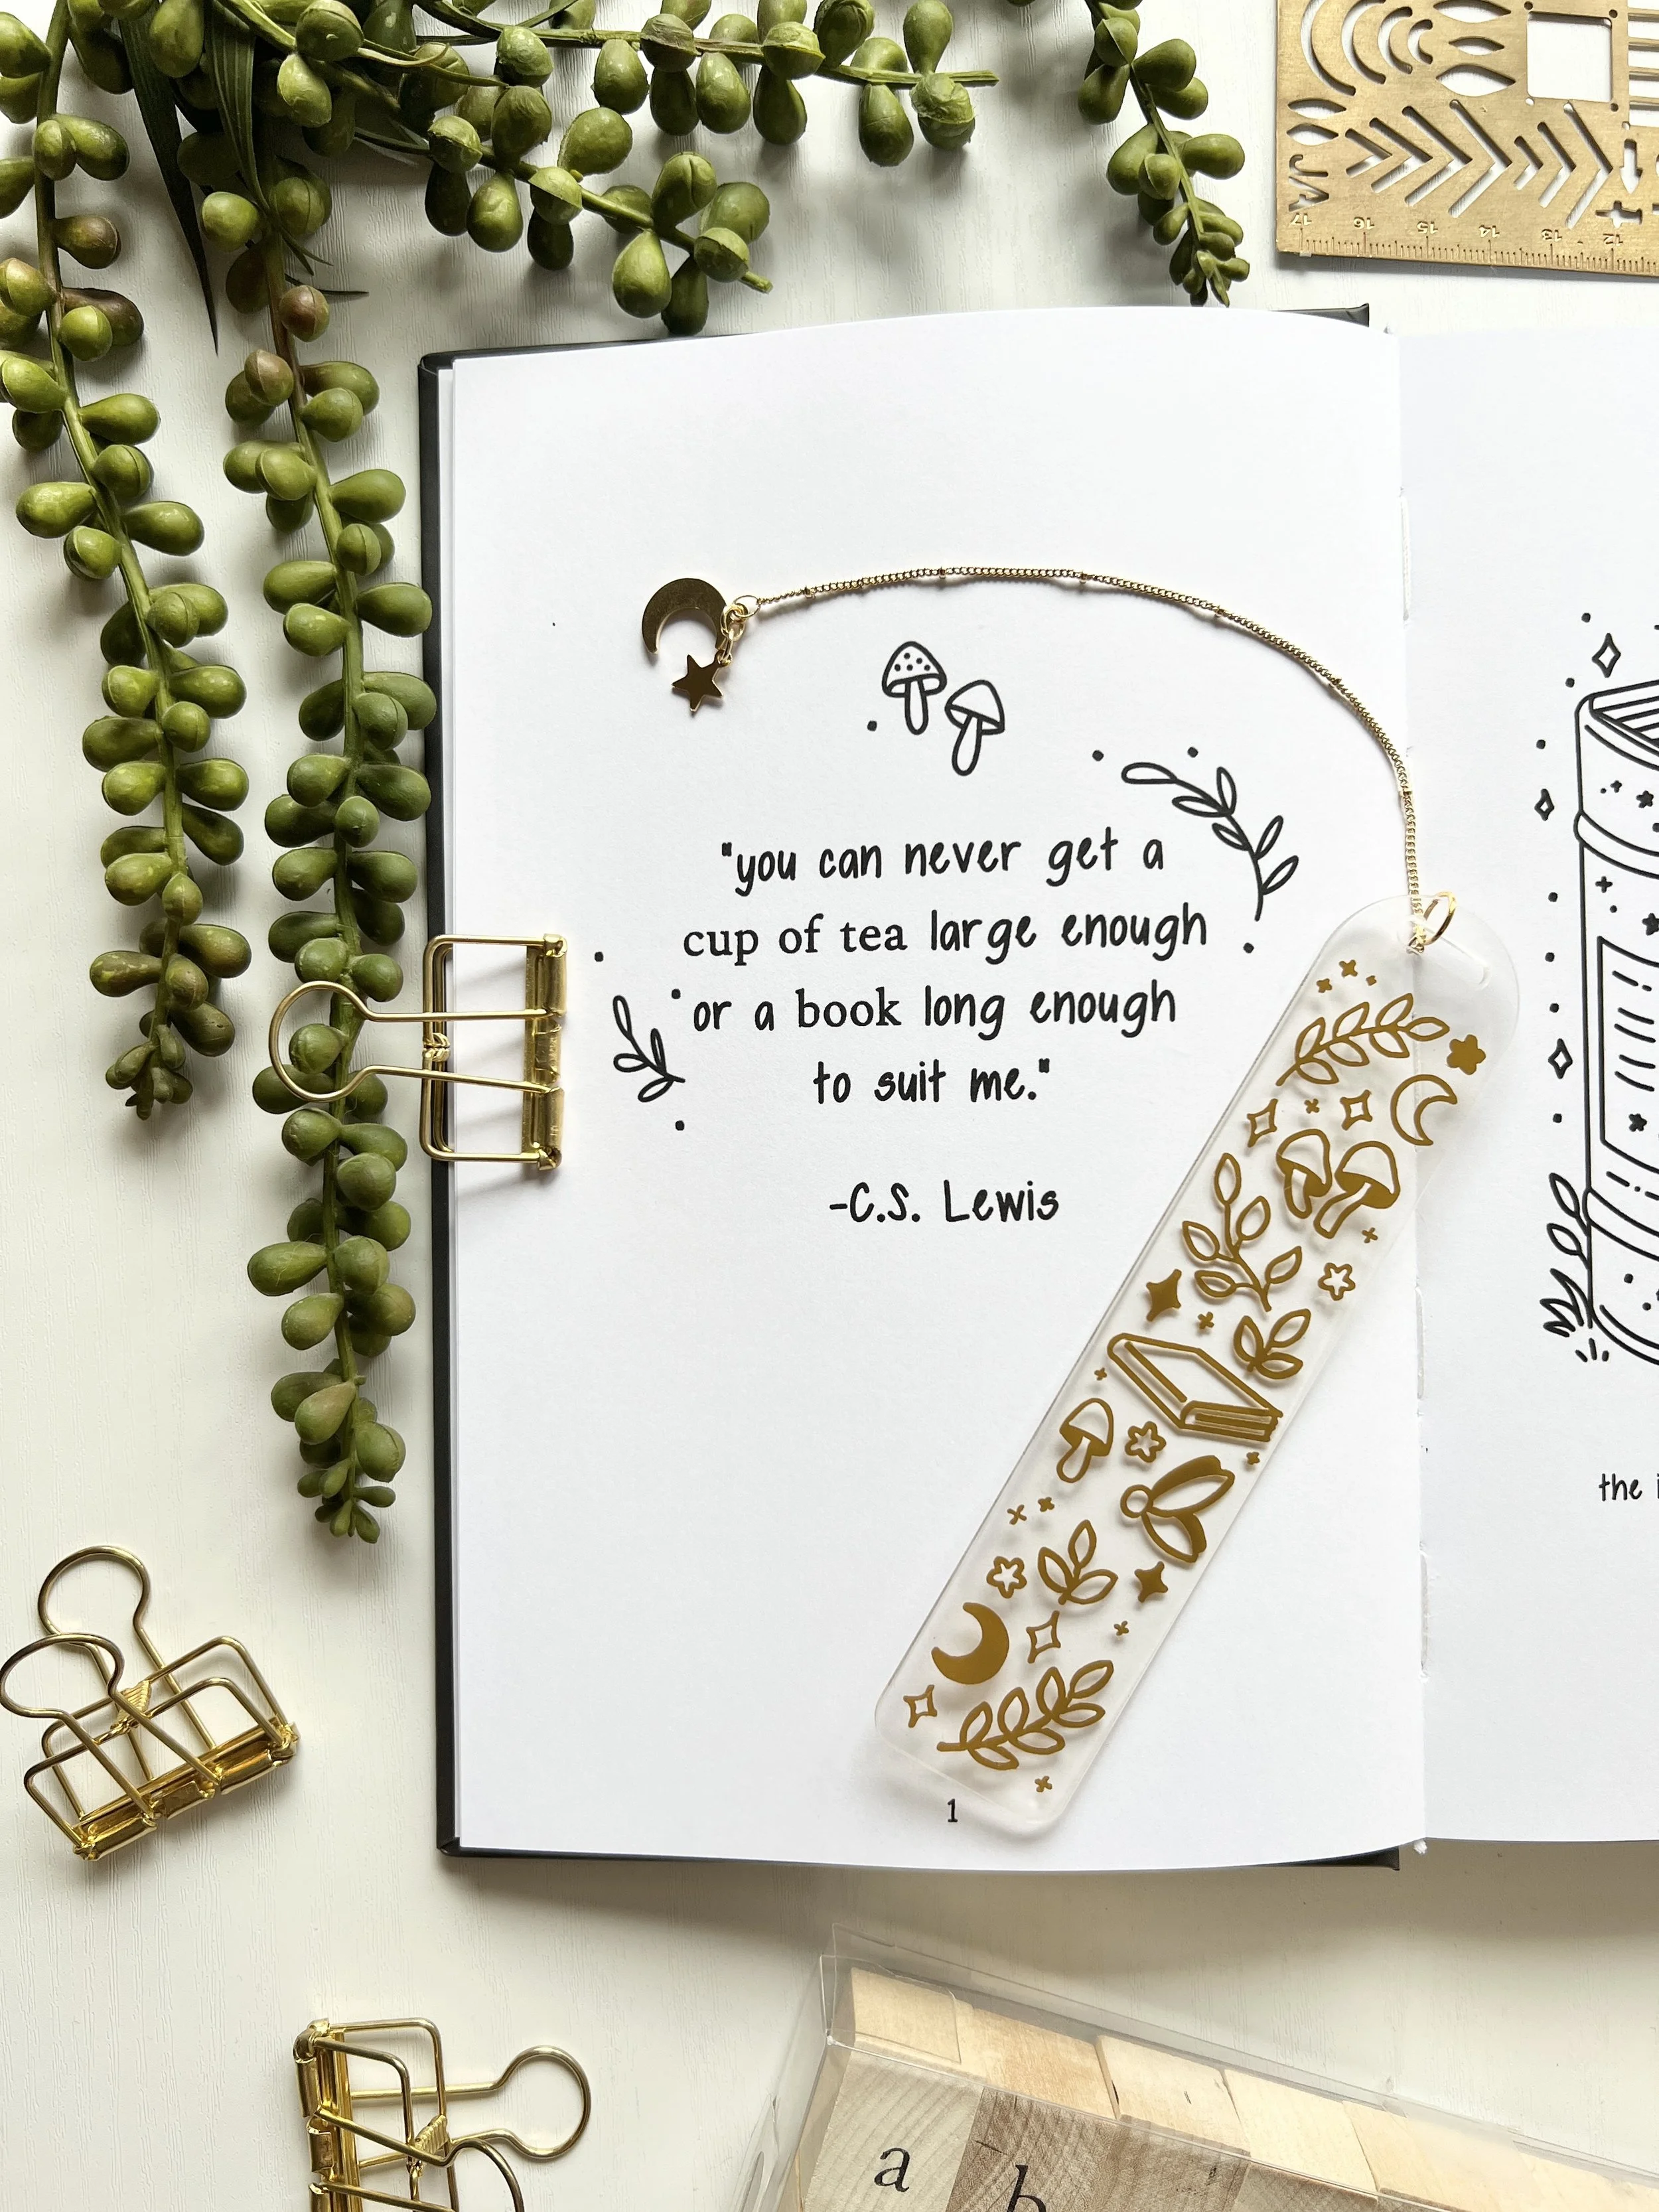 17 16 15 14 13 12
"you can never get a
cup of tea large enough
or a book long enough
to suit me."
-C.S. Lewis
the
1
a
b